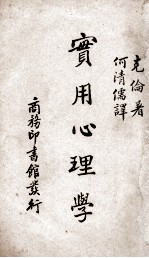 克倫著
何清儒譯
實用心理學
商務印書館發行